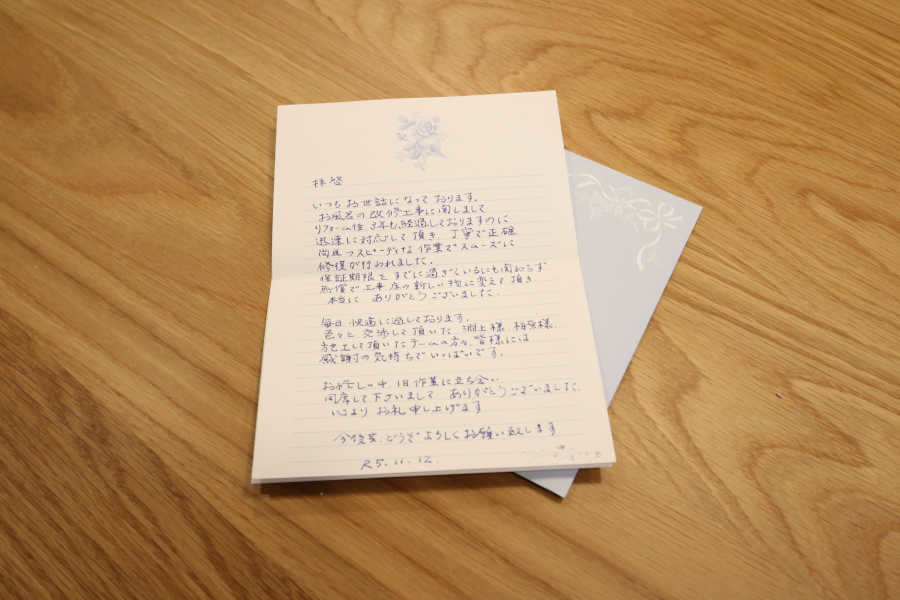 拝啓
いつもお世話になって おります。
お風呂の改修工事に関しまして
リフォーム後 3年も経過しておりますのに
迅速に対応して頂き 丁寧で正確
尚且つスピーディな作業でスムーズに
修復が行われました。
保証期限もすでに過ぎているにも関わらず
無償で工事 床の新しい物に変えて頂き
本当に ありがとうございました。
毎日 快適に過しております。
色々と 交渉して頂いた 渕上様 相原様
施工して頂いたチームの方々 皆様には
感謝の気持ちでいっぱいです。
お忙しい中 1日作業に立ち会い
同席して下さいまして ありがとうございました。
心より お礼申し上げます
今後共、どうぞよろしくお願い致します
R5.11.12.